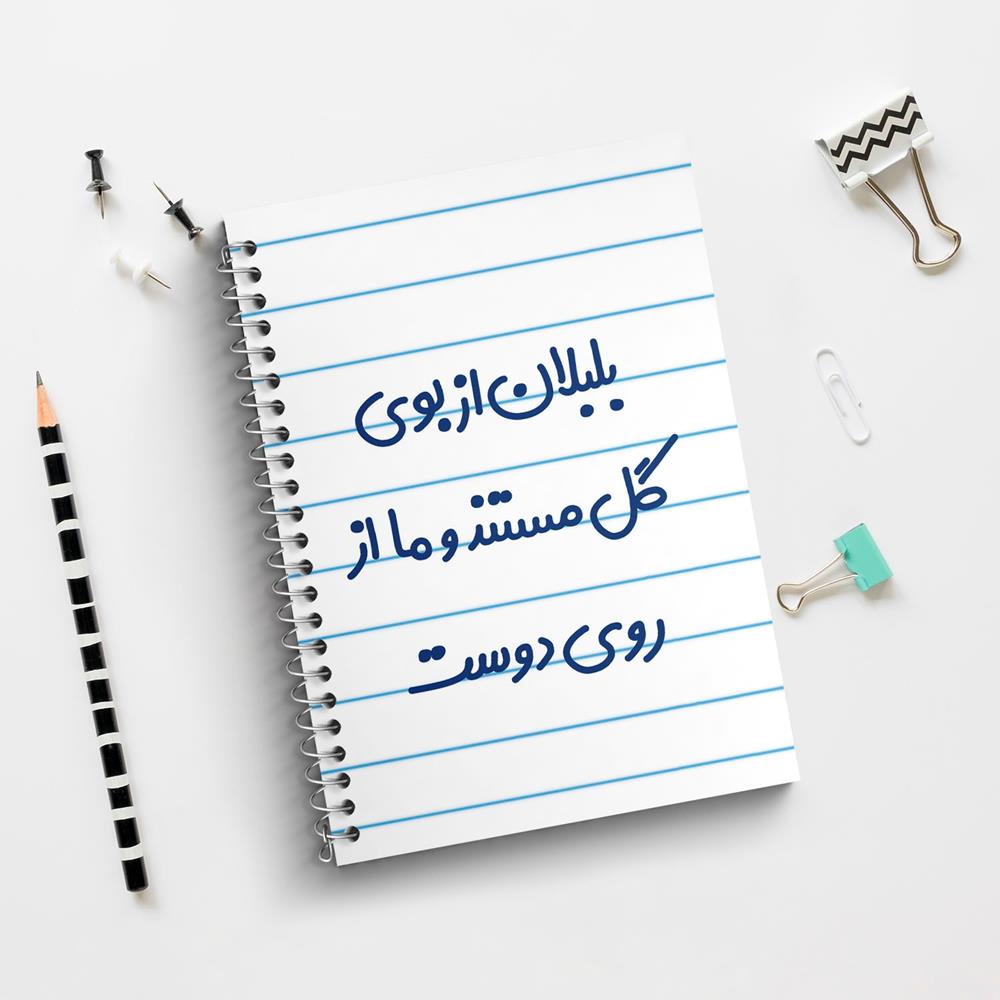 بلبلان از بوی
گل مستند و ما از
روی دوست